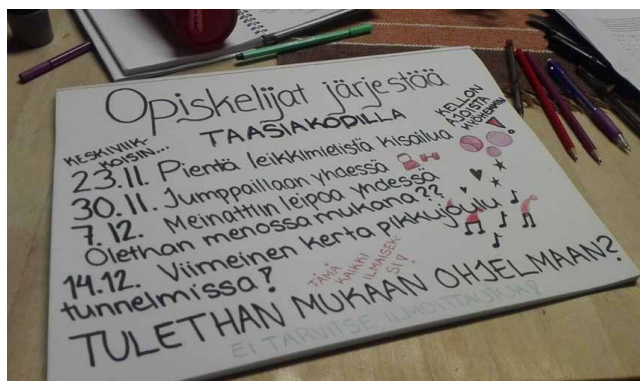 Opiskelijat järjestää
TAASIAKODILLA
KESKIVIIK-
KOISIN...
KELLON
AJOISTA
23.11. Pientä leikkimielistä kisailua
30.11. Jumppaillaan yhdessä
7.12. Meinattiin leipoa yhdessä
Olethan menossa mukana??
14.12. Viimeinen kerta pikkujoulu
tunnelmissa!
TÄMÄ
KAIKKI
ILMAISEK-
SI!
TULETHAN MUKAAN OHJELMAAN?
EI TARVITSE ILMOITTAUTUA!